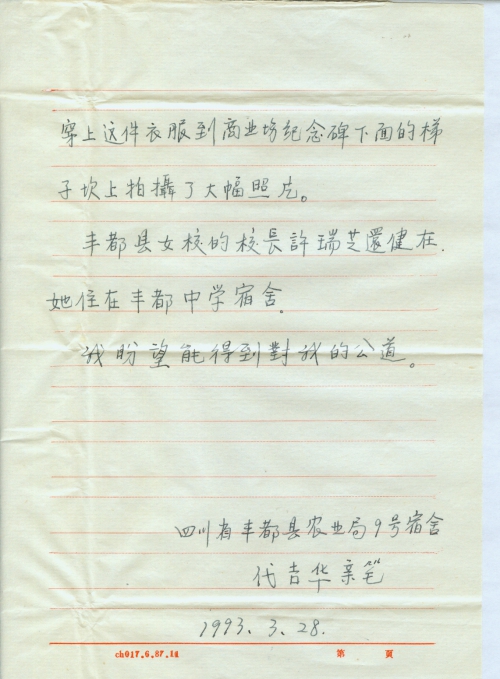 穿上这件衣服到商业场纪念碑下面的梯
子坎上拍攝了大幅照片。
丰都县女校的校長許瑞芝還健在.
她住在丰都中学宿舍.
我盼望能得到對我的公道。
四川省丰都县农业局9号宿舍
代吉华亲笔
1993.3.28.
ch017.6.87.11
第 頁